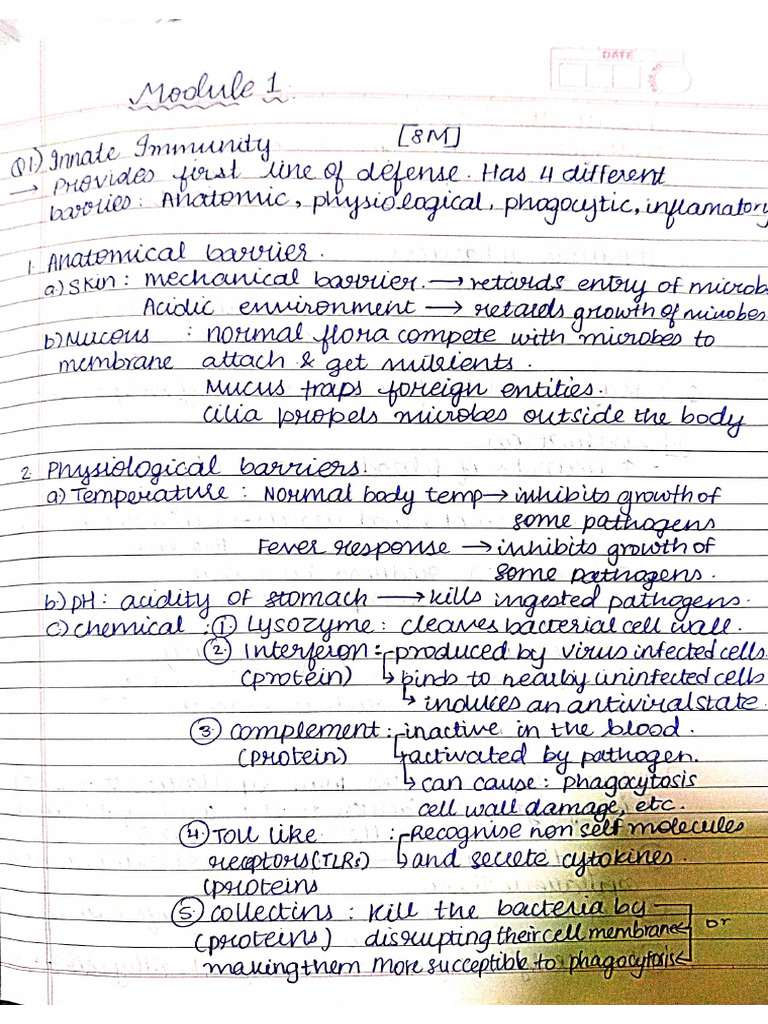 DATE
Module 1.
[8M]
Q1) Innate Immunity
→ Provides first line of defense. Has 4 different
barries: Anatomic, physiological, phagocytic, inflamatory
1. Anatomical barrier.
a) Skin: mechanical barrier. → retards entry of microb
Acidic environment → retards growth of microbes.
b) Mucous : normal flora compete with microbes to
membrane attach & get nutrients.
Mucus traps foreign entities.
cilia propels microbes outside the body
2. Physiological barriers.
a) Temperature: Normal body temp → inhibits growth of
some pathogens
Fever response → inhibits growth of
some pathogens.
b) pH: acidity of stomach → kills ingested pathogens.
c) chemical : ① Lysozyme: cleaves bacterial cell wall.
② Interferon: produced by virus infected cells.
(protein) ↳ binds to nearby uninfected cells
↳ induces an antiviral state.
③ complement: inactive in the blood.
(protein) ↳ activated by pathogen.
↳ can cause: phagocytosis
cell wall damage, etc.
④ Toll like : Recognise non self molecules
receptors (TLRs) ↳ and secrete cytokines.
(proteins
⑤ collectins : kill the bacteria by
(proteins) disrupting their cell membrane or
making them more succeptible to phagocytosis